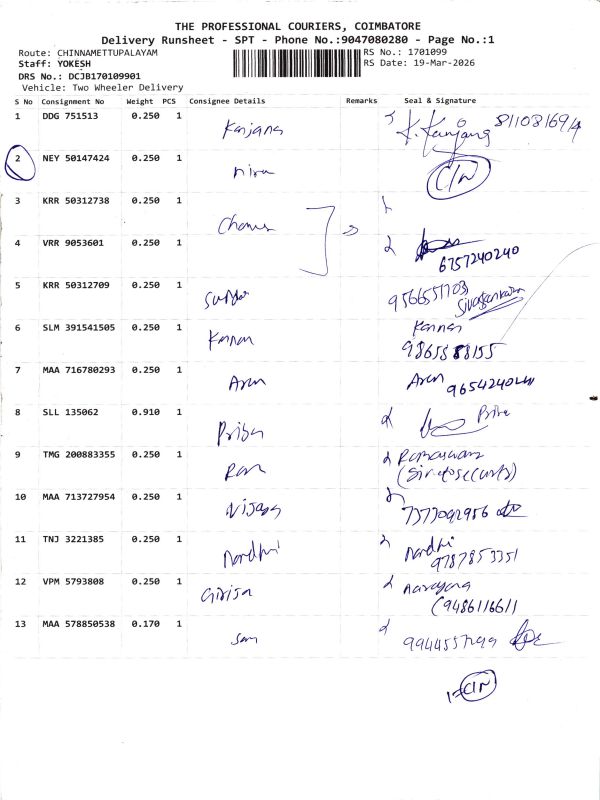 THE PROFESSIONAL COURIERS, COIMBATORE
Delivery Runsheet - SPT - Phone No.:9047080280 - Page No.:1
Route: CHINNAMETTUPALAYAM
RS No.: 1701099
Staff: YOKESH
RS Date: 19-Mar-2026
DRS No.: DCJB170109901
Vehicle: Two Wheeler Delivery
S No Consignment No Weight PCS Consignee Details Remarks Seal & Signature
1 DDG 751513 0.250 1 Kanjana K. Kanjana
2 NEY 50147424 0.250 1 C/N
3 KRR 50312738 0.250 1
4 VRR 9053601 0.250 1 6757240240
5 KRR 50312709 0.250 1 Sivasankaran
6 SLM 391541505 0.250 1 Kannan Kannan
7 MAA 716780293 0.250 1 Arun Arun
8 SLL 135062 0.910 1
9 TMG 200883355 0.250 1 Ram
10 MAA 713727954 0.250 1 7373092956
11 TNJ 3221385 0.250 1 Nandhi Nandhi
9787853351
12 VPM 5793808 0.250 1 Girija
13 MAA 578850538 0.170 1 Sam
1=C/N